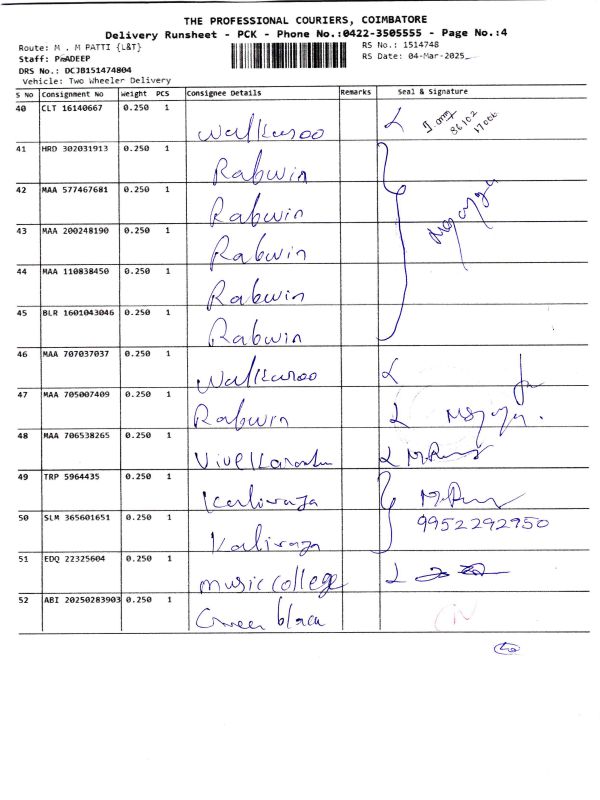 THE PROFESSIONAL COURIERS, COIMBATORE
Delivery Runsheet - PCK - Phone No.:0422-3505555 - Page No.:4
Route: M . M PATTI {L&T}
RS No.: 1514748
Staff: PRADEEP
RS Date: 04-Mar-2025
DRS No.: DCJB151474804
Vehicle: Two Wheeler Delivery
S No Consignment No Weight PCS Consignee Details Remarks Seal & Signature
40 CLT 16140667 0.250 1
41 HRD 302031913 0.250 1 Rabwin
42 MAA 577467681 0.250 1 Rabwin
43 MAA 200248190 0.250 1 Rabwin
44 MAA 110838450 0.250 1 Rabwin
45 BLR 1601043046 0.250 1 Rabwin
46 MAA 707037037 0.250 1
47 MAA 705007409 0.250 1 Rabwin
48 MAA 706538265 0.250 1
49 TRP 5964435 0.250 1
50 SLM 365601651 0.250 1 9952292950
51 EDQ 22325604 0.250 1 music college
52 ABI 20250283903 0.250 1 Green